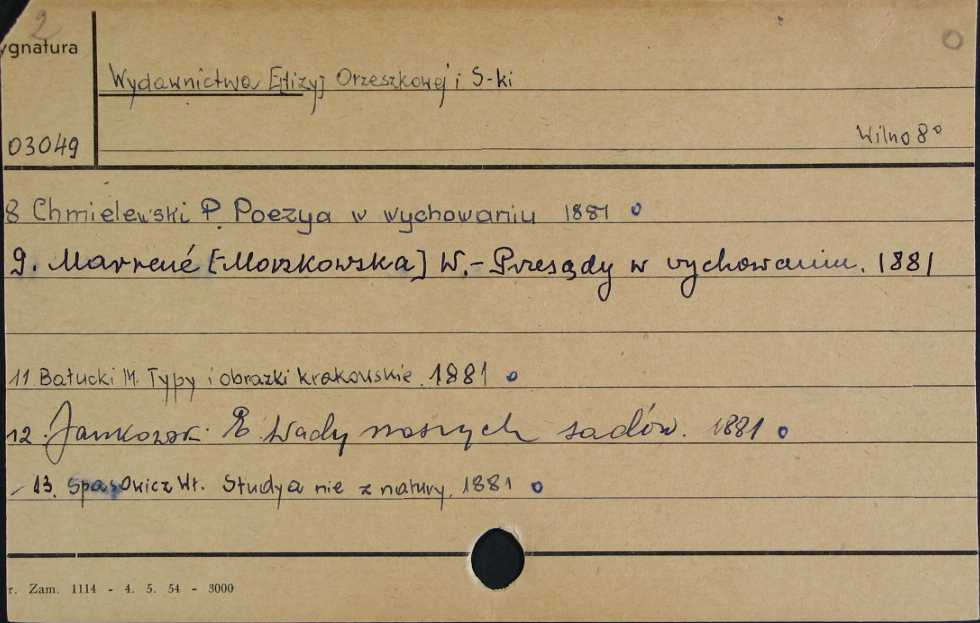 2
ygnatura
Wydawnictwa E[lizy] Orzeszkowej i S-ki
03049
Wilno 8°
8 Chmielewski P. Poezya w wychowaniu 1881 o
9. Marrené [Morzkowska] W. - Przesądy w wychowaniu. 1881
11 Bałucki M. Typy i obrazki krakowskie. 1881 o
12. Jankowski E. Wady naszych sadów. 1881 o
13. Spasowicz Wł. Studya nie z natury. 1881 o
r. Zam. 1114 - 4. 5. 54 - 3000